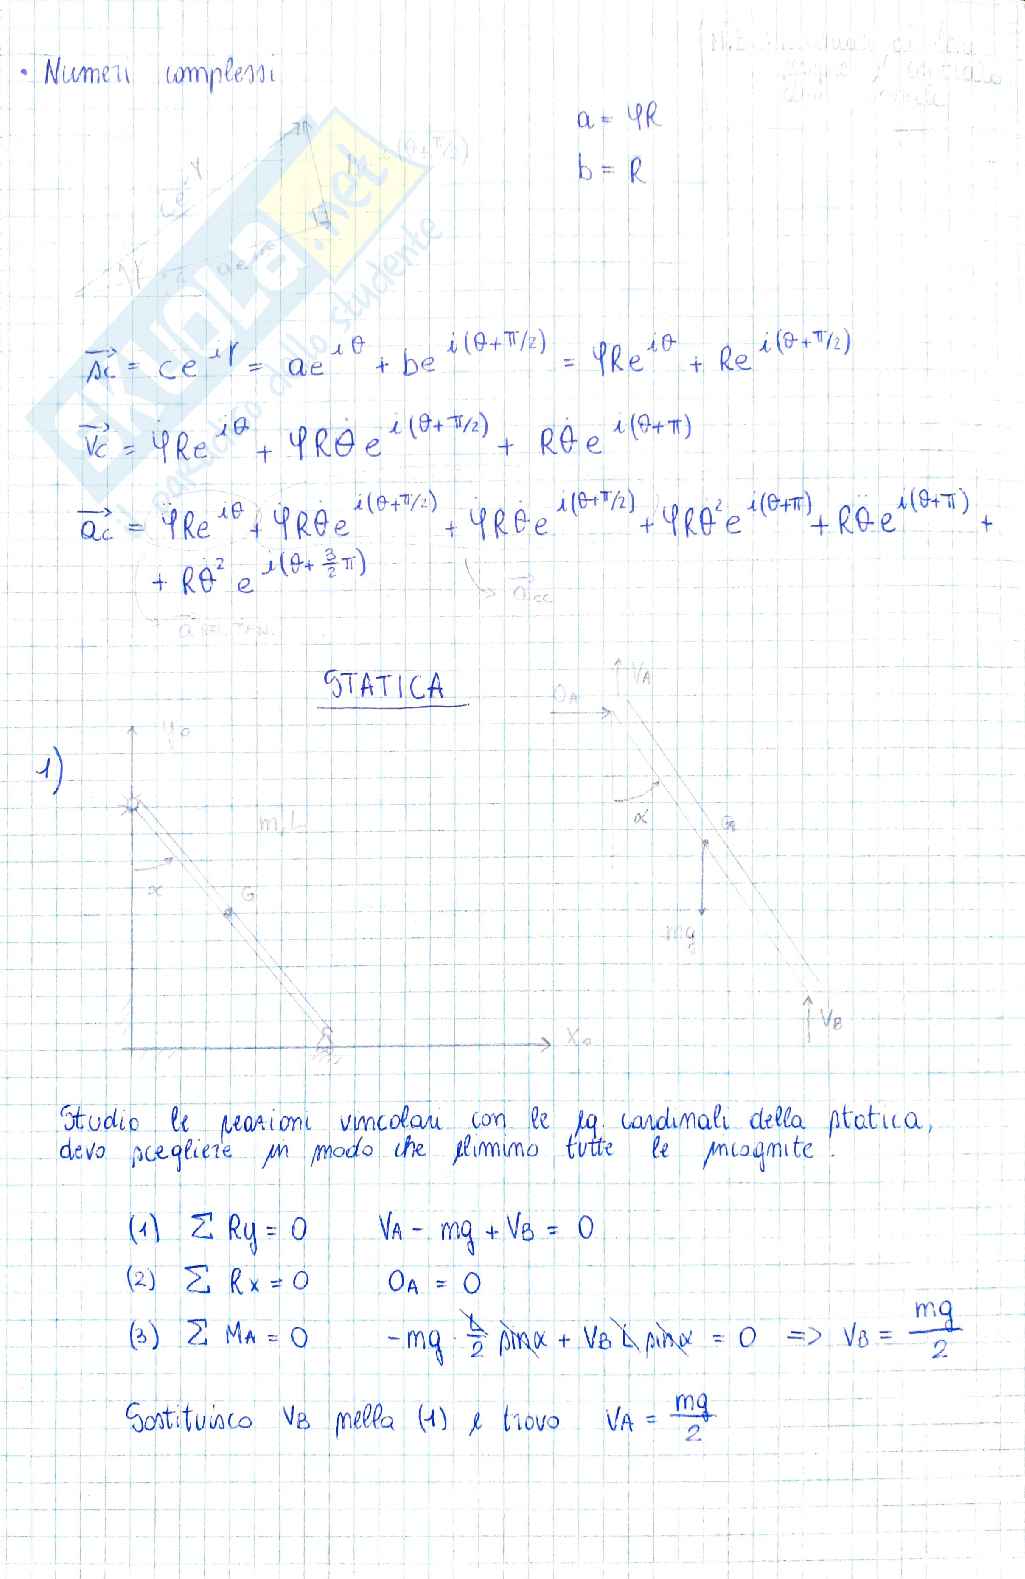 • Numeri complessi
a = φR
b = R
SKUOLA.net
il paradiso dello studente
s⃗c = ce^{iγ} = ae^{iθ} + be^{i(θ+π/2)} = φRe^{iθ} + Re^{i(θ+π/2)}
v⃗c = φ̇Re^{iθ} + φRθ̇e^{i(θ+π/2)} + Rθ̇e^{i(θ+π)}
a⃗c = φ̈Re^{iθ} + φ̇Rθ̇e^{i(θ+π/2)} + φRθ̈e^{i(θ+π/2)} + φRθ̇²e^{i(θ+π)} + Rθ̈e^{i(θ+π)} +
+ Rθ̇²e^{i(θ+3/2π)}
STATICA
1)
Y₀
m, L
α
G
X₀
V_A
O_A
α
G
mg
V_B
Studio le reazioni vincolari con le eq. cardinali della statica,
devo scegliere in modo che elimino tutte le incognite.
(1) Σ Ry = 0 V_A - mg + V_B = 0
(2) Σ Rx = 0 O_A = 0
(3) Σ M_A = 0 -mg · L/2 sinα + V_B L sinα = 0 => V_B = mg/2
Sostituisco V_B nella (1) e trovo V_A = mg/2